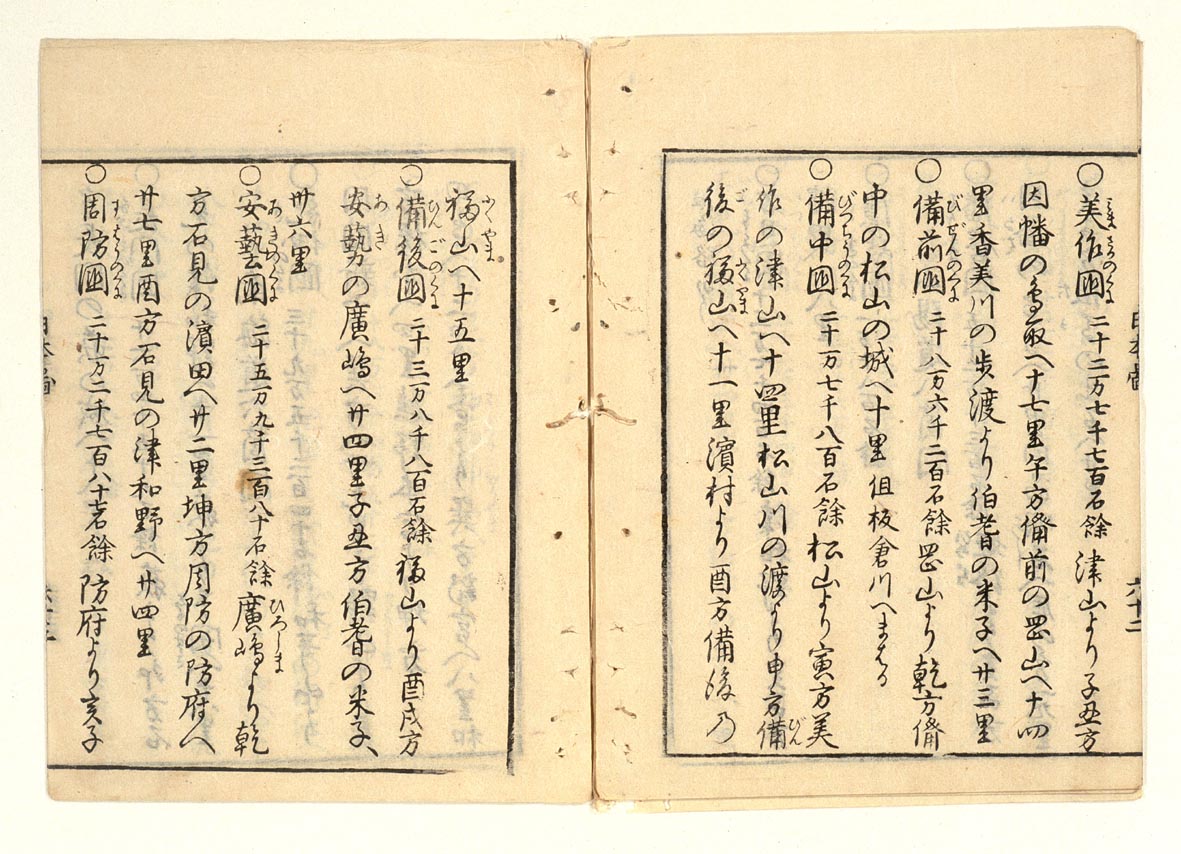 ○美作国 二十二万七千七百石餘 津山より子丑方
因幡の鳥取へ十七里午方備前の岡山へ十四
里香美川の歩渡より伯耆の米子へ廿三里
○備前国 二十八万六千二百石餘 岡山より乾方備
中の松山の城へ十里 但板倉川へまはる
○備中国 二十万七千八百石餘 松山より寅方美
作の津山へ十四里松山川の渡より申方備
後の福山へ十一里濱村より酉方備後の
福山へ十五里
○備後国 二十三万八千八百石餘 福山より酉戌方
安藝の廣嶋へ廿四里子丑方伯耆の米子へ
卅六里
○安藝国 二十五万九千三百八十石餘 廣嶋より乾
方石見の濱田へ廿二里坤方周防の防府へ
廿七里酉方石見の津和野へ廿四里
○周防国 二十万二千七百八十石餘 防府より亥子
六十二